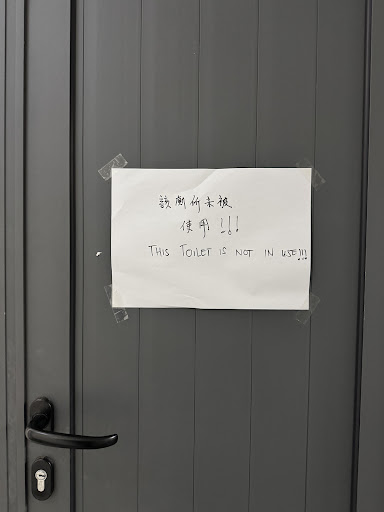 該廁所未被
使用!!!
THIS TOILET IS NOT IN USE!!!